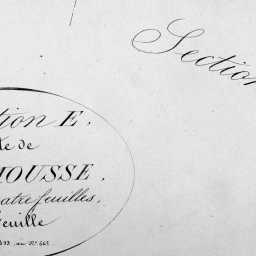 Section
tion E.
te de
HOUSSE.
quatre feuilles,
feuille